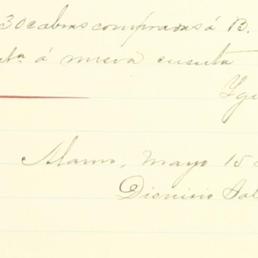 30 cabras compradas á B.
á nueva cuenta
Alamo, Mayo 15
Dionicio